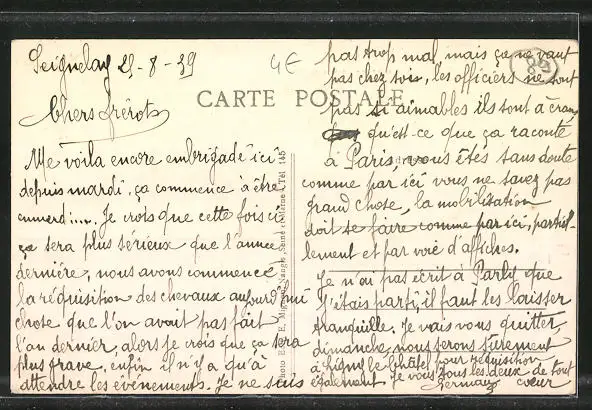 Seignelay 25-8-39
4€
89
CARTE POSTALE
Chers frérots
Me voila encore embrigadé ici
depuis mardi, ça commence à être
emmerd..... Je crois que cette fois ci
ça sera plus sérieux que l'année
dernière, nous avons commencé
la réquisition des chevaux aujourd'hui
chose que l'on avait pas fait
l'an dernier, alors je crois que ça sera
plus grave, enfin il n'y a qu'à
attendre les évènements. Je ne suis
pas trop mal mais ça ne vaut
pas chez sois, les officiers ne sont
pas si aimables ils sont à cran
qu'est-ce que ça raconte
à Paris, vous êtes sans doute
comme par ici vous ne savez pas
grand chose, la mobilisation
doit se faire comme par ici, partiel-
lement et par voie d'affiches.
Je n'ai pas écrit à Parly que
j'étais parti, il faut les laisser
tranquille. Je vais vous quitter
dimanche nous serons surement
à Ligny le Châtel pour réquisition
également Je vous tous les deux de tout
Germain coeur